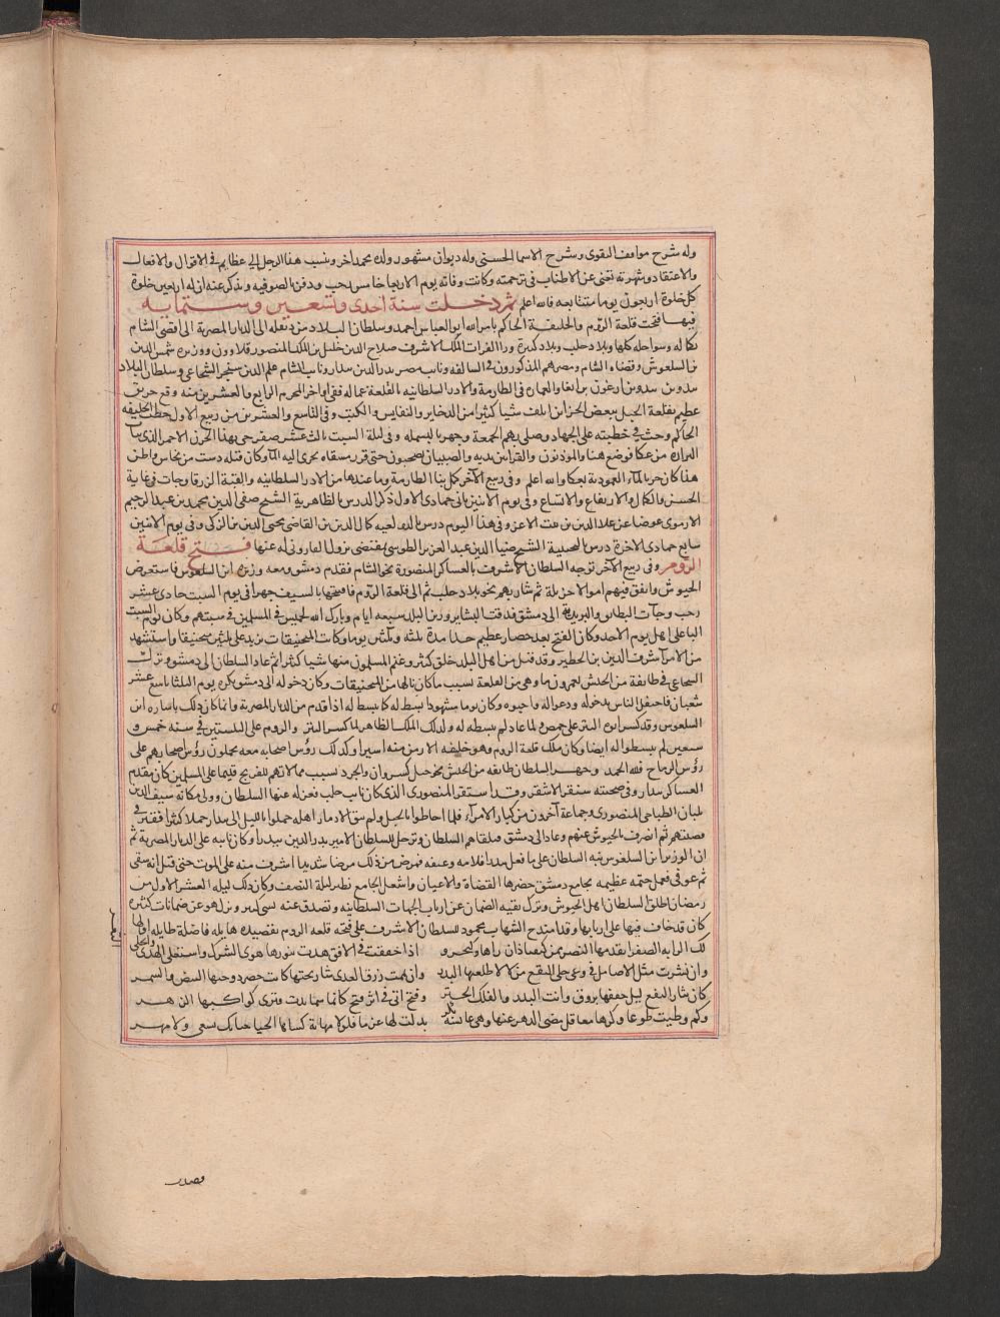 وله شرح مواقف النفري وشرح الاسما الحسنى وله ديوان مشهور ولولده محمد اخر ونسب هذا الرجل الى عظايم في الاقوال والافعال
والاعتقاد وشهرته تغنى عن الاطناب فى ترجمته وكانت وفاته يوم الاربعا خامس رجب ودفن بالصوفيه ويذكر عنه انه له اربعين خلوة
كل خلوة اربعون يوما متتابعه فالله اعلم ثم دخلت سنة احدى وتسعين وستمايه
فيها فتحت قلعة الروم والخليفة الحاكم بامر الله ابو العباس احمد وسلطان البلاد من دنقله الى الديار المصرية الى اقصى الشام
بكماله وسواحله كلها وبلاد حلب وبلاد كثيرة ورا الفرات الملك الاشرف صلاح الدين خليل بن الملك المنصور قلاوون ووزيره شمس الدين
بن السلعوس وقضاة الشام ومصر هم المذكورون فى السالفه ونايب مصر بدر الدين بيدرا ونايب الشام علم الدين سنجر الشجاعى وسلطان البلاد
بن ارغون بن ابغا والعماره فى الطارمة والادر السلطانيه بالقلعة عماله ففى اواخر المحرم الرابع والعشرين منه وقع حريق
عظيم بقلعة الجبل ببعض الخزاين اتلف شيا كثيرا من الذخاير والنفايس والكتب وفى التاسع والعشرين من ربيع الاول خطب الخليفه
الحاكم وحث فى خطبته على الجهاد وصلى بهم الجمعة وجهر بالبسمله وفى ليلة السبت ثالث عشر صفر جى بهذا الجرن الاحمر الذى بباب
البرادة من عكا فوضع هنا والموذنون والقرا بين يديه والصبيان يضجون حتى قرر مسقاه يجرى اليه الما وكان قبله دست من نحاس واظن
هذا كان جرنا لما المعمودية بعكا والله اعلم وفى ربيع الاخر كمل بنا الطارمة وما عندها من الادر السلطانيه والقبة الزرقا وجات فى غاية
الحسن والكمال والارتفاع والاتساع وفى يوم الاثنين ثانى جمادى الاول ذكر الدرس بالظاهرية الشيخ صفى الدين محمد بن عبد الرحيم
الارموى عوضا عن علا الدين بن بنت الاعز وفى هذا اليوم درس بالدولعيه كمال الدين بن القاضى يحيى الدين بن الزكى وفى يوم الاثنين
سابع جمادى الاخرة درس بالنجيبية الشيخ ضيا الدين عبد العزيز الطوسى بمقتضى نزول الفاروثى له عنها فتح قلعة
الروم وفى ربيع الاخر توجه السلطان الاشرف بالعساكر المنصورة نحو الشام فقدم دمشق ومعه وزيره ابن السلعوس فاستعرض
الجيوش وانفق فيهم اموالا جزيلة ثم سار بهم نحو بلاد حلب ثم الى قلعة الروم فافتتحها بالسيف جهرا فى يوم السبت حادى عشر
رجب وجات البطايق والبريدية الى دمشق فدقت البشاير وزين البلد سبعه ايام وبارك الله لجيش المسلمين فى سبتهم وكان يوم السبت
البا على اهل يوم الاحد وكان الفتح بعد حصار عظيم جدا مدة ثلثه وثلثين يوما وكانت المنجنيقات تزيد على ثلثين منجنيقا واستشهد
من الامرا شرف الدين بن الخطير وقد قتل من اهل البلد خلق كثير وغنم المسلمون منها شيا كثيرا ثم عاد السلطان الى دمشق وترك
الشجاعى فى طايفة من الجيش يعمرون ما وهى من القلعة بسبب ما كان نالها من المنجنيقات وكان دخوله الى دمشق بكره يوم الثلثا تاسع عشر
شعبان فاحتفل الناس بدخوله ودعوا له واحبوه وكان يوما مشهودا بسط له كما يبسط له اذا قدم من الديار المصرية وانما كان ذلك باشارة ابن
السلعوس وقد كسر ابوه التتر على حمص ولما عاد لم يبسط له وكذلك الملك الظاهر لما كسر التتر والروم على البلستين فى سنه خمس و
سبعين لم يبسطوا له ايضا وكان ملك قلعة الروم وهو خليفه الارمن معه اسيرا وكذلك رؤس اصحابه معه يحملون رؤس اصحابهم على
رؤس الرماح فلله الحمد وجهز السلطان طايفه من الجيش نحو جبل كسروان والجرد بسبب ممالاتهم للفرنج قديما على المسلمين وكان مقدم
العساكر بيدرا وفى صحبته سنقر الاشقر وقرا سنقر المنصورى الذى كان نايب حلب فعزله عنها السلطان وولى مكانه سيف الدين
بلبان الطباخى المنصورى وجماعة اخرون من كبار الامرآء فلما احاطوا بالجبل ولم يبق الا دمار اهله حملوا بالليل الى بيدرا حملا كثيرا ففتر فى
قضيتهم ثم انصرف بالجيوش عنهم وعاد الى دمشق فتلقاهم السلطان وترجل السلطان للامير بدر الدين بيدرا وكان نايبه على الديار المصرية ثم
ان الوزير ابن السلعوس نبه السلطان على ما فعل بيدرا فلامه وعنفه فمرض من ذلك مرضا شديدا اشرف منه على الموت حتى قيل انه سقى
ثم عوفى فعمل ختمه عظيمه بجامع دمشق حضرها القضاة والاعيان واشعل الجامع نظير ليلة النصف وكان ذلك ليله العشر الاول من
رمضان اطلق السلطان اهل الحبوس وترك بقيه الضمان عن ارباب الجهات السلطانيه وتصدق عنه بشى كثير ونزل هو عن ضمانات كثيره
كان قد خاف فيها على اربابها وقد امتدح الشهاب محمود للسلطان الاشرف على فتحه قلعه الروم بقصيده هايله فاضلة طايله اولها
لك الرايه الصفرا يقدمها النصر فمن كيقباذ ان راها وكيخسرو
اذا خفقت فى الافق هدت بنورها هوى الشرك واستعلى الهدى
وان نشرت مثل الاصايل فى وغى جلى النقع من لالا طلعتها البدر
وان يممت زرق العدى سار تحتها كتايب خضر دوحها البيض والسمر
كان مثار النقع ليل خفقها بروق وانت البدر والفلك الجتر
وفتح اتى فى اثر فتح كانما سما بدت وترى كواكبها الزهر
وكم وطيت طوعا وكرها معاقل مضى الدهر عنها وهى عانسة بكر
بذلت لها عزما فلولا مهابة كساها الحيا جاتك تسعى ولا مهر
قصدت